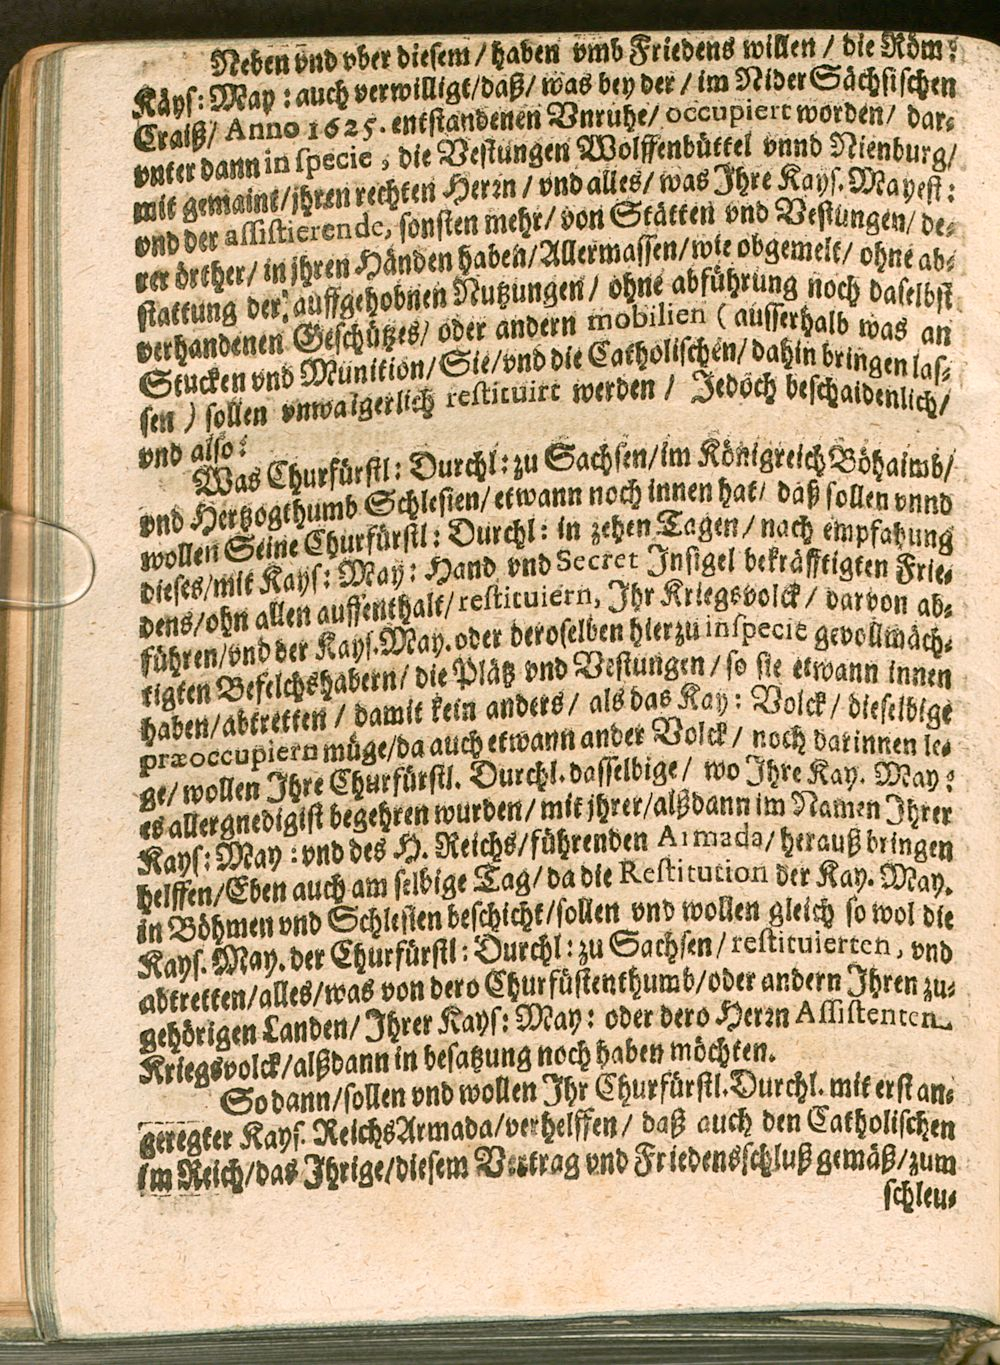 Neben vnd vber diesem / haben vmb Friedens willen / die Röm:
Käys: May : auch verwilligt/daß/ was bey der / im Nider Sächsischen
Craiß/ Anno 1625. entstandenen Vnruhe/ occupiert worden/ dar-
vnter dann in specie, die Vestungen Wolffenbüttel vnnd Nienburg/
mit gemaint/jhren rechten Herrn / vnd alles/ was Ihre Kays. Mayest:
vnd der assistierende, sonsten mehr/ von Stätten vnd Vestungen/ de-
rer örther/ in jhren Händen haben/Allermassen/wie obgemelt/ ohne ab-
stattung der: auffgehobnen Nutzungen/ ohne abführung noch daselbst
verhandenen Geschützes/ oder andern mobilien ( ausserhalb was an
Stucken vnd Munition/Sie/vnd die Catholischen/ dahin bringen las-
sen ) sollen vnwaigerlich restituirt werden / Jedoch beschaidenlich/
vnd also:
Was Churfürstl: Durchl: zu Sachsen/im Königreich Böhaimb/
vnd Hertzogthumb Schlesien/ etwann noch innen hat/ daß sollen vnnd
wollen Seine Churfürstl: Durchl: in zehen Tagen / nach empfahung
dieses/mit Kays: May: Hand vnd Secret Insigel bekräfftigten Frie-
dens/ohn allen auffenthalt/restituiern, Ihr Kriegsvolck / darvon ab-
führen/vnd der Kays.May. oder deroselben hierzu inspecie gevollmäch-
tigten Befelchshabern/ die Plätz vnd Vestungen / so sie etwann innen
haben/abtretten / damit kein anders/ als das Kay: Volck/ dieselbige
præoccupiern müge/da auch etwann ander Volck / noch darinnen le-
ge/ wollen Ihre Churfürstl. Durchl. dasselbige / wo Ihre Kay. May:
es allergnedigist begehren wurden/ mit jhrer/alßdann im Namen Ihrer
Kays: May : vnd des H. Reichs/führenden Armada/ herauß bringen
helffen/Eben auch am selbige Tag/ da die Restitution der Kay. May.
in Böhmen vnd Schlesien beschicht/sollen vnd wollen gleich so wol die
Kays. May. der Churfürstl: Durchl: zu Sachsen / restituierten, vnd
abtretten/alles/was von dero Churfüstenthumb/oder andern Ihren zu-
gehörigen Landen/ Ihrer Kays: May: oder dero Herrn Assistenten
Kriegsvolck/alßdann in besatzung noch haben möchten.
So dann/sollen vnd wollen Ihr Churfürstl.Durchl. mit erst an-
geregter Kays. ReichsArmada/verhelffen/ daß auch den Catholischen
im Reich/das Ihrige/diesem Vertrag vnd Friedensschluß gemäß/zum
schleu-